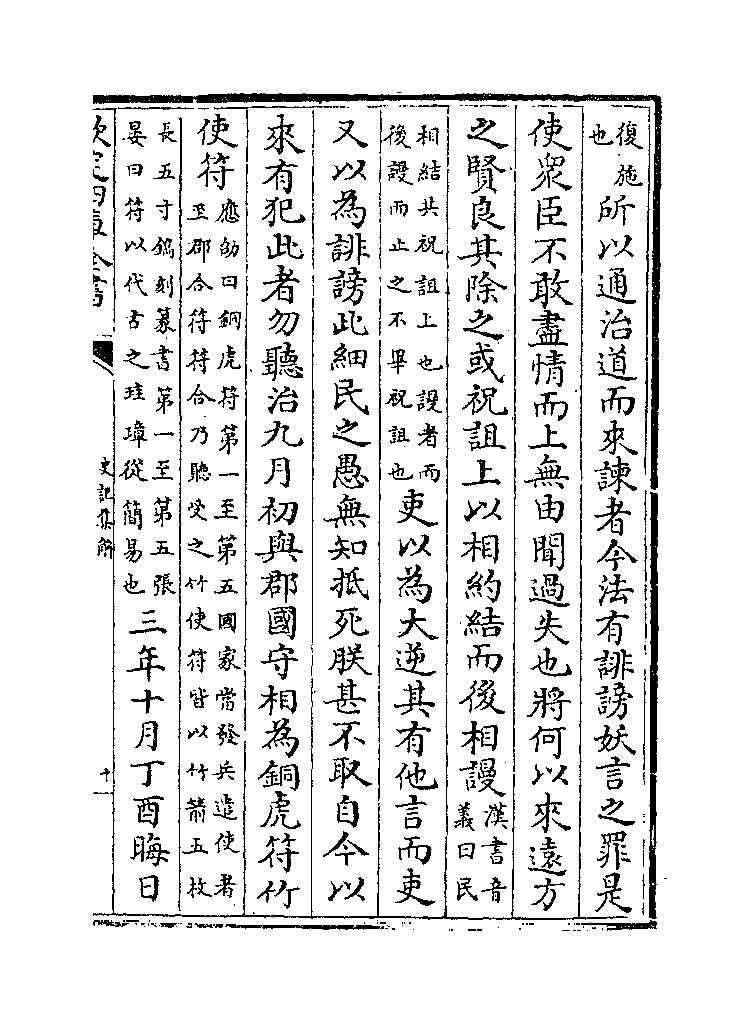 復施也所以通治道而來諫者今法有誹謗妖言之罪是
使衆臣不敢盡情而上無由聞過失也將何以來遠方
之賢良其除之或祝詛上以相約結而後相謾漢書音義曰民
相結共祝詛上也謾者而後謾而止之不畢祝詛也吏以為大逆其有他言而吏
又以為誹謗此細民之愚無知抵死朕甚不取自今以
來有犯此者勿聽治九月初與郡國守相為銅虎符竹
使符應劭曰銅虎符第一至第五國家當發兵遣使者至郡合符符合乃聽受之竹使符皆以竹箭五枚
長五寸鐫刻篆書第一至第五張晏曰符以代古之珪璋從簡易也三年十月丁酉晦日
欽定四庫全書
史記集解
十